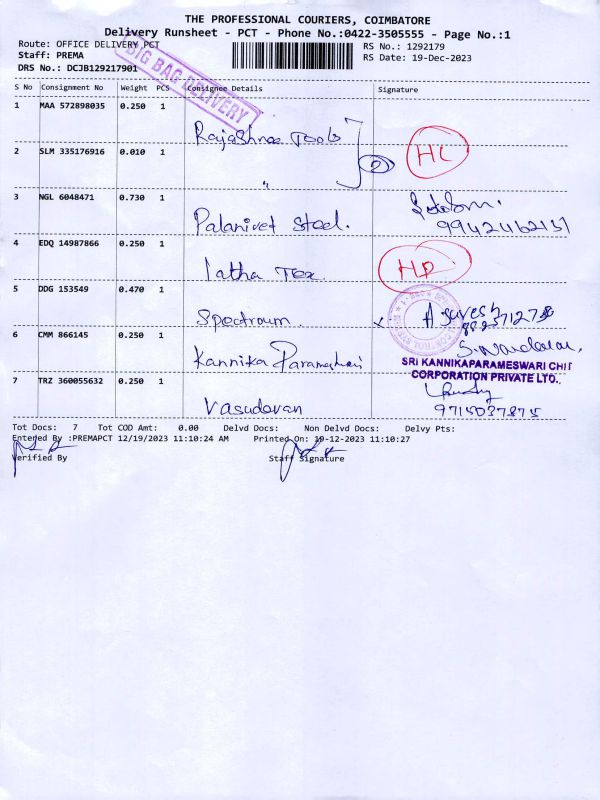 THE PROFESSIONAL COURIERS, COIMBATORE
Delivery Runsheet - PCT - Phone No.:0422-3505555 - Page No.:1
Route: OFFICE DELIVERY PCT
RS No.: 1292179
Staff: PREMA
RS Date: 19-Dec-2023
DRS No.: DCJB129217901
BIG BAG DELIVERY
S No Consignment No Weight PCS Consignee Details Signature
1 MAA 572898035 0.250 1
Rajashree Tools
HC
2 SLM 335176916 0.010 1
"
3 NGL 6048471 0.730 1
Palanivel Steel.
9942462131
4 EDQ 14987866 0.250 1
latha Tex.
5 DDG 153549 0.470 1
Spectraum.
A Suresh
6 CMM 866145 0.250 1
Kannika Parameshwari
SRI KANNIKAPARAMESWARI CHIT
CORPORATION PRIVATE LTD.,
7 TRZ 360055632 0.250 1
Vasudevan
9715037875
Tot Docs: 7 Tot COD Amt: 0.00 Delvd Docs: Non Delvd Docs: Delvy Pts:
Entered By :PREMAPCT 12/19/2023 11:10:24 AM Printed On: 19-12-2023 11:10:27
Verified By Staff Signature